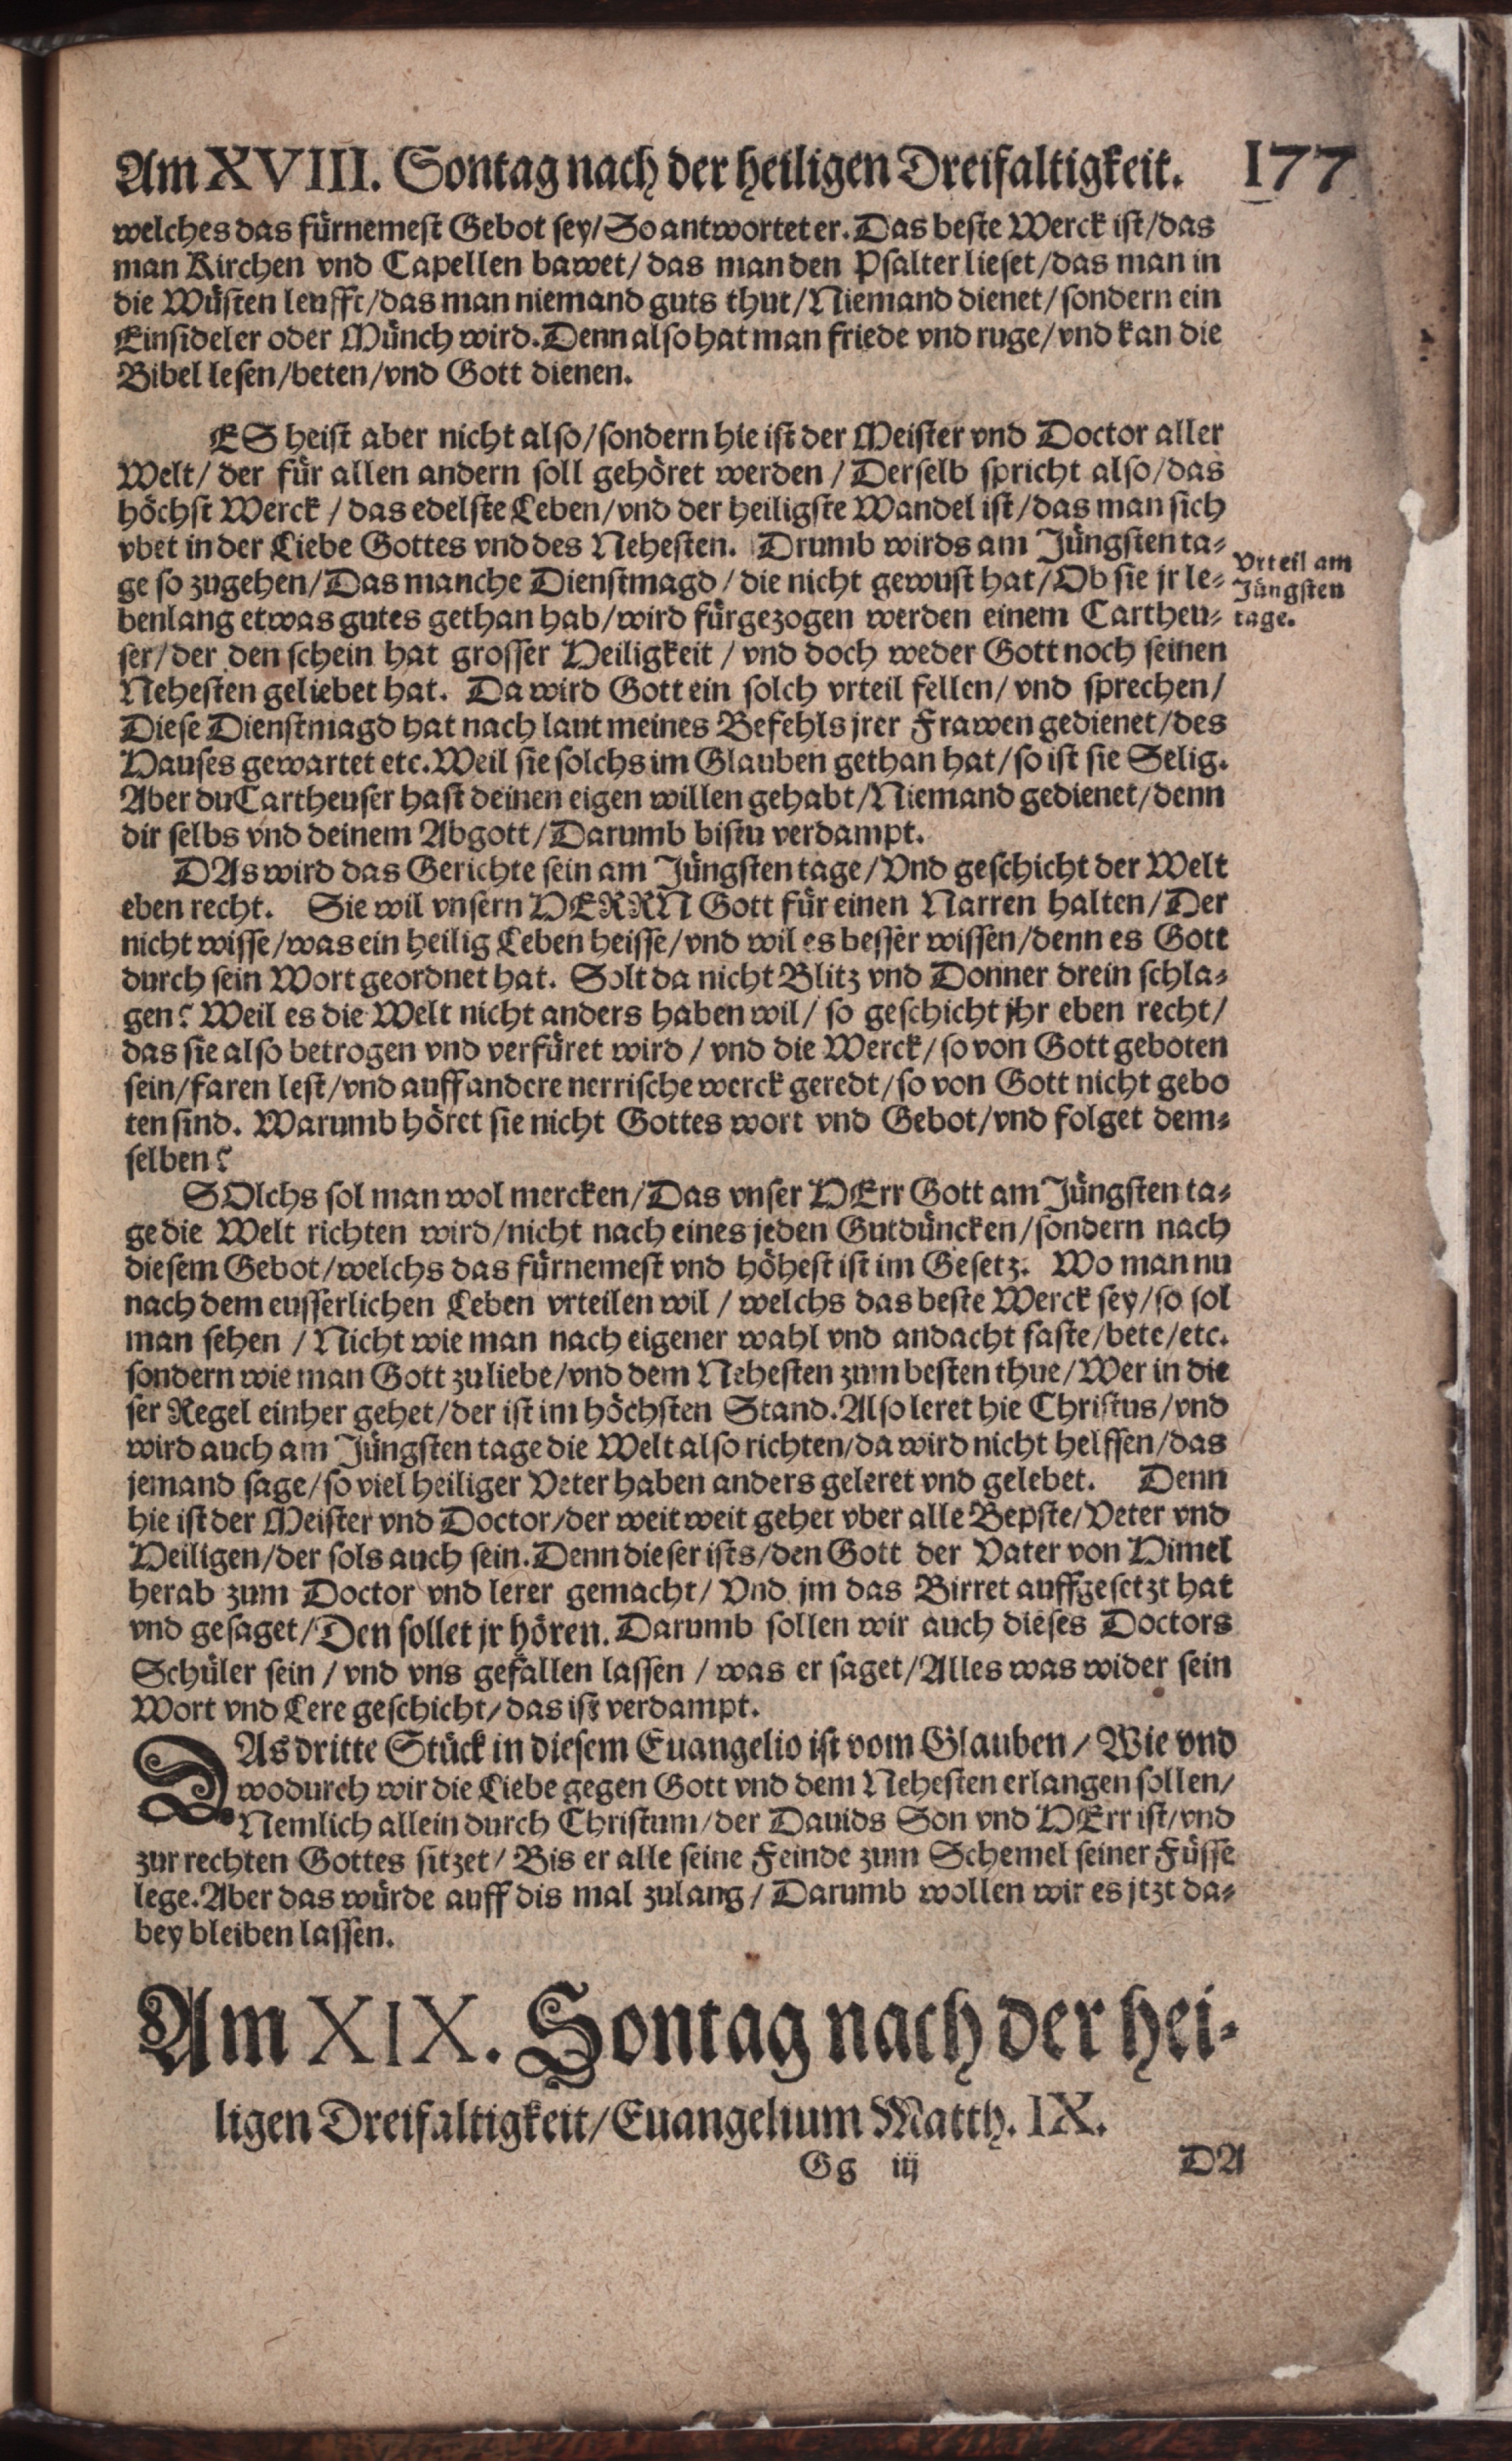 Am XVIII. Sontag nach der heiligen Dreifaltigkeit. 177
welches das fürnemest Gebot sey/So antwortet er. Das beste Werck ist/das
man Kirchen vnd Capellen bawet/das man den Psalter lieset/das man in
die Wüsten leufft/das man niemand guts thut/Niemand dienet/sondern ein
Einsideler oder Münch wird. Denn also hat man friede vnd ruge/vnd kan die
Bibel lesen/beten/vnd Gott dienen.
ES heist aber nicht also/sondern hie ist der Meister vnd Doctor aller
Welt/ der für allen andern soll gehöret werden / Derselb spricht also/das
höchst Werck / das edelste Leben/vnd der heiligste Wandel ist/das man sich
vbet in der Liebe Gottes vnd des Nehesten. Drumb wirds am Jüngsten ta-
ge so zugehen/Das manche Dienstmagd/die nicht gewust hat/Ob sie jr le-
benlang etwas gutes gethan hab/wird fürgezogen werden einem Cartheu-
ser/der den schein hat grosser Heiligkeit / vnd doch weder Gott noch seinen
Nehesten geliebet hat. Da wird Gott ein solch vrteil fellen/ vnd sprechen/
Diese Dienstmagd hat nach laut meines Befehls jrer Frawen gedienet/des
Hauses gewartet etc. Weil sie solchs im Glauben gethan hat/so ist sie Selig.
Aber du Cartheuser hast deinen eigen willen gehabt/Niemand gedienet/denn
dir selbs vnd deinem Abgott/Darumb bistu verdampt.
Vrteil am
Jüngsten
tage.
DAs wird das Gerichte sein am Jüngsten tage/Vnd geschicht der Welt
eben recht. Sie wil vnsern HERRN Gott für einen Narren halten/Der
nicht wisse/was ein heilig Leben heisse/vnd wil es besser wissen/denn es Gott
durch sein Wort geordnet hat. Solt da nicht Blitz vnd Donner drein schla-
gen? Weil es die Welt nicht anders haben wil/ so geschicht jhr eben recht/
das sie also betrogen vnd verfüret wird / vnd die Werck/so von Gott geboten
sein/faren lest/vnd auff andere nerrische werck geredt/so von Gott nicht gebo
ten sind. Warumb höret sie nicht Gottes wort vnd Gebot/vnd folget dem-
selben?
SOlchs sol man wol mercken/Das vnser HErr Gott am Jüngsten ta-
ge die Welt richten wird/nicht nach eines jeden Gutdüncken/sondern nach
diesem Gebot/welchs das fürnemest vnd höhest ist im Gesetz. Wo man nu
nach dem eusserlichen Leben vrteilen wil / welchs das beste Werck sey/so sol
man sehen / Nicht wie man nach eigener wahl vnd andacht faste/bete/etc.
sondern wie man Gott zu liebe/vnd dem Nehesten zum besten thue/Wer in die
ser Regel einher gehet/der ist im höchsten Stand. Also leret hie Christus/vnd
wird auch am Jüngsten tage die Welt also richten/da wird nicht helffen/das
jemand sage/so viel heiliger Veter haben anders geleret vnd gelebet. Denn
hie ist der Meister vnd Doctor/der weit weit gehet vber alle Bepste/Veter vnd
Heiligen/der sols auch sein. Denn dieser ists/den Gott der Vater von Himel
herab zum Doctor vnd lerer gemacht/ Vnd jm das Birret auffgesetzt hat
vnd gesaget/Den sollet jr hören. Darumb sollen wir auch dieses Doctors
Schüler sein / vnd vns gefallen lassen / was er saget/Alles was wider sein
Wort vnd Lere geschicht/das ist verdampt.
DAs dritte Stück in diesem Euangelio ist vom Glauben/ Wie vnd
wodurch wir die Liebe gegen Gott vnd dem Nehesten erlangen sollen/
Nemlich allein durch Christum/der Dauids Son vnd HErr ist/vnd
zur rechten Gottes sitzet/ Bis er alle seine Feinde zum Schemel seiner Füsse
lege. Aber das würde auff dis mal zulang/ Darumb wollen wir es jtzt da-
bey bleiben lassen.
Am XIX. Sontag nach der hei-
ligen Dreifaltigkeit/Euangelium Matth. IX.
Gg iij DA